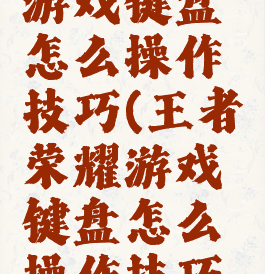 游戏键盘
怎么操作
技巧(王者
荣耀游戏
键盘怎么
操作技巧